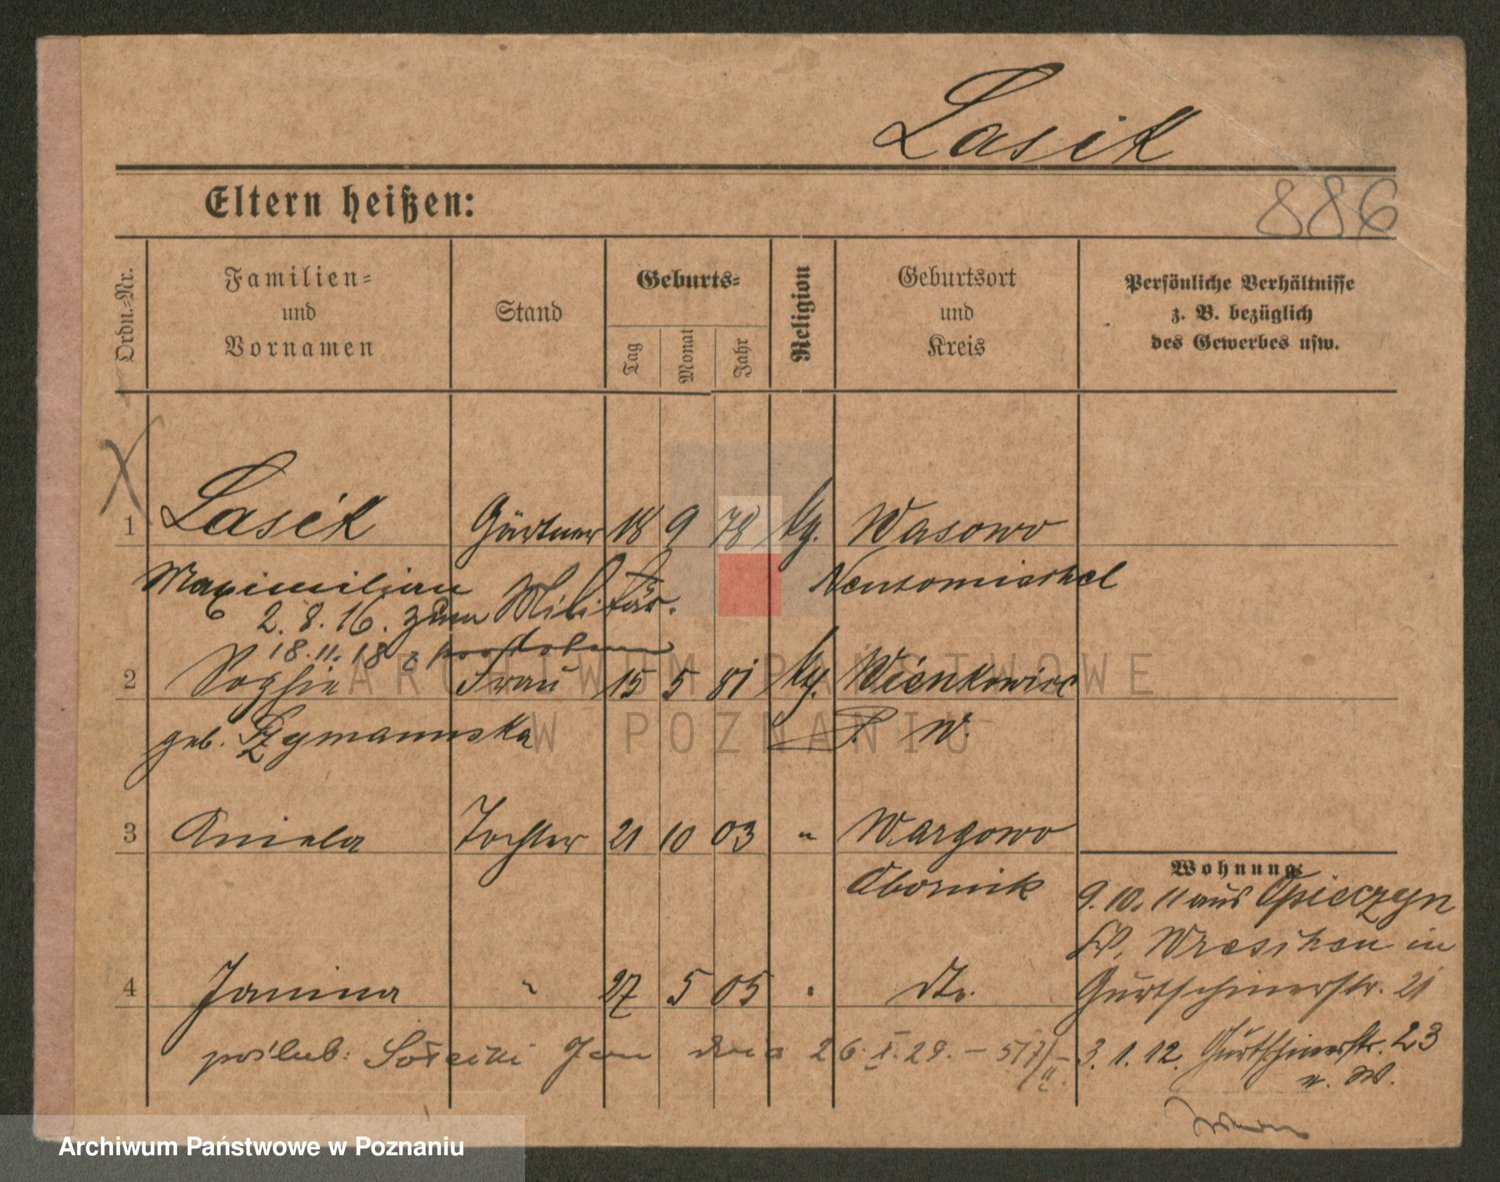 Lasik
Eltern heißen:
886
Ordn.-Nr.
Familien-
und
Vornamen
Stand
Geburts-
Tag
Monat
Jahr
Religion
Geburtsort
und
Kreis
Persönliche Verhältnisse
z. B. bezüglich
des Gewerbes usw.
1 Lasik Gärtner 18 9 78 kg. Wasowo
Maximilian Neutomischel
2. 8. 16. zum Militär.
18. 11. 18 z
2 Sophie Frau 15 5 81 kg. Wienkowiec
geb. Szymannska P. W.
3 Aniela Tochter 21 10 03 " Wargowo
Obornik
Wohnung:
9. 10. 11 aus Opieczyn
Kr. Wreschen in
4 Janina " 27 5 05 " dto.
Gurtschinerstr. 21
poślub: Sołecki Jan dnia 26. X. 29. – 517/
3. 1. 12. Gurtschinerstr. 23
n. W.
ARCHIWUM PAŃSTWOWE
W POZNANIU
Archiwum Państwowe w Poznaniu